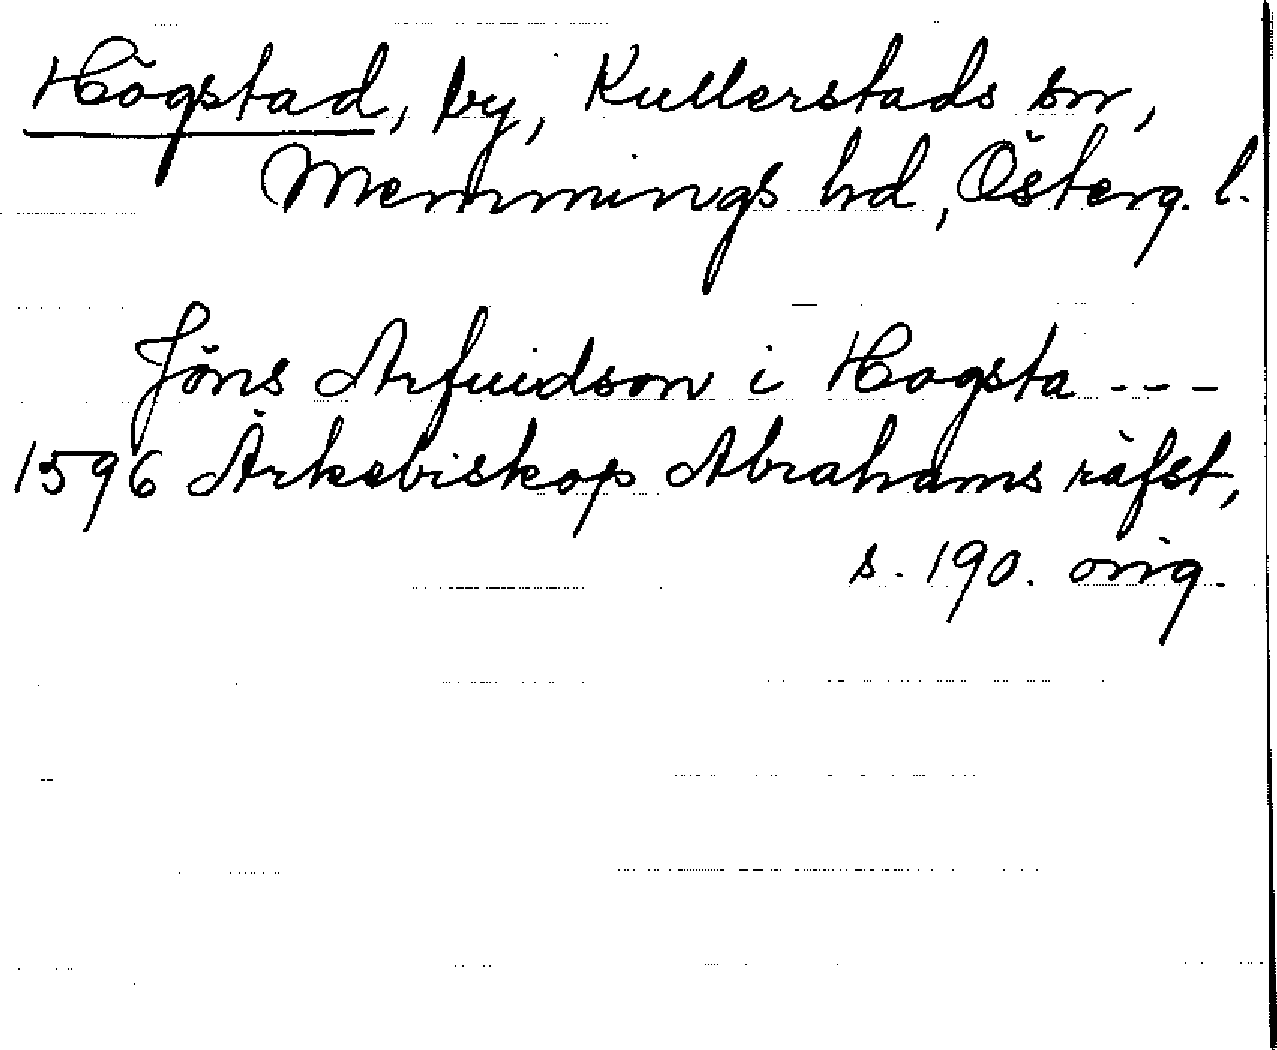 Högstad, by, Kullerstads sn,
Memmings hd, Österg. l.
Jöns Arfuidson i Hogsta ---
1596 Ärkebiskop Abrahams räfst,
s. 190. orig.